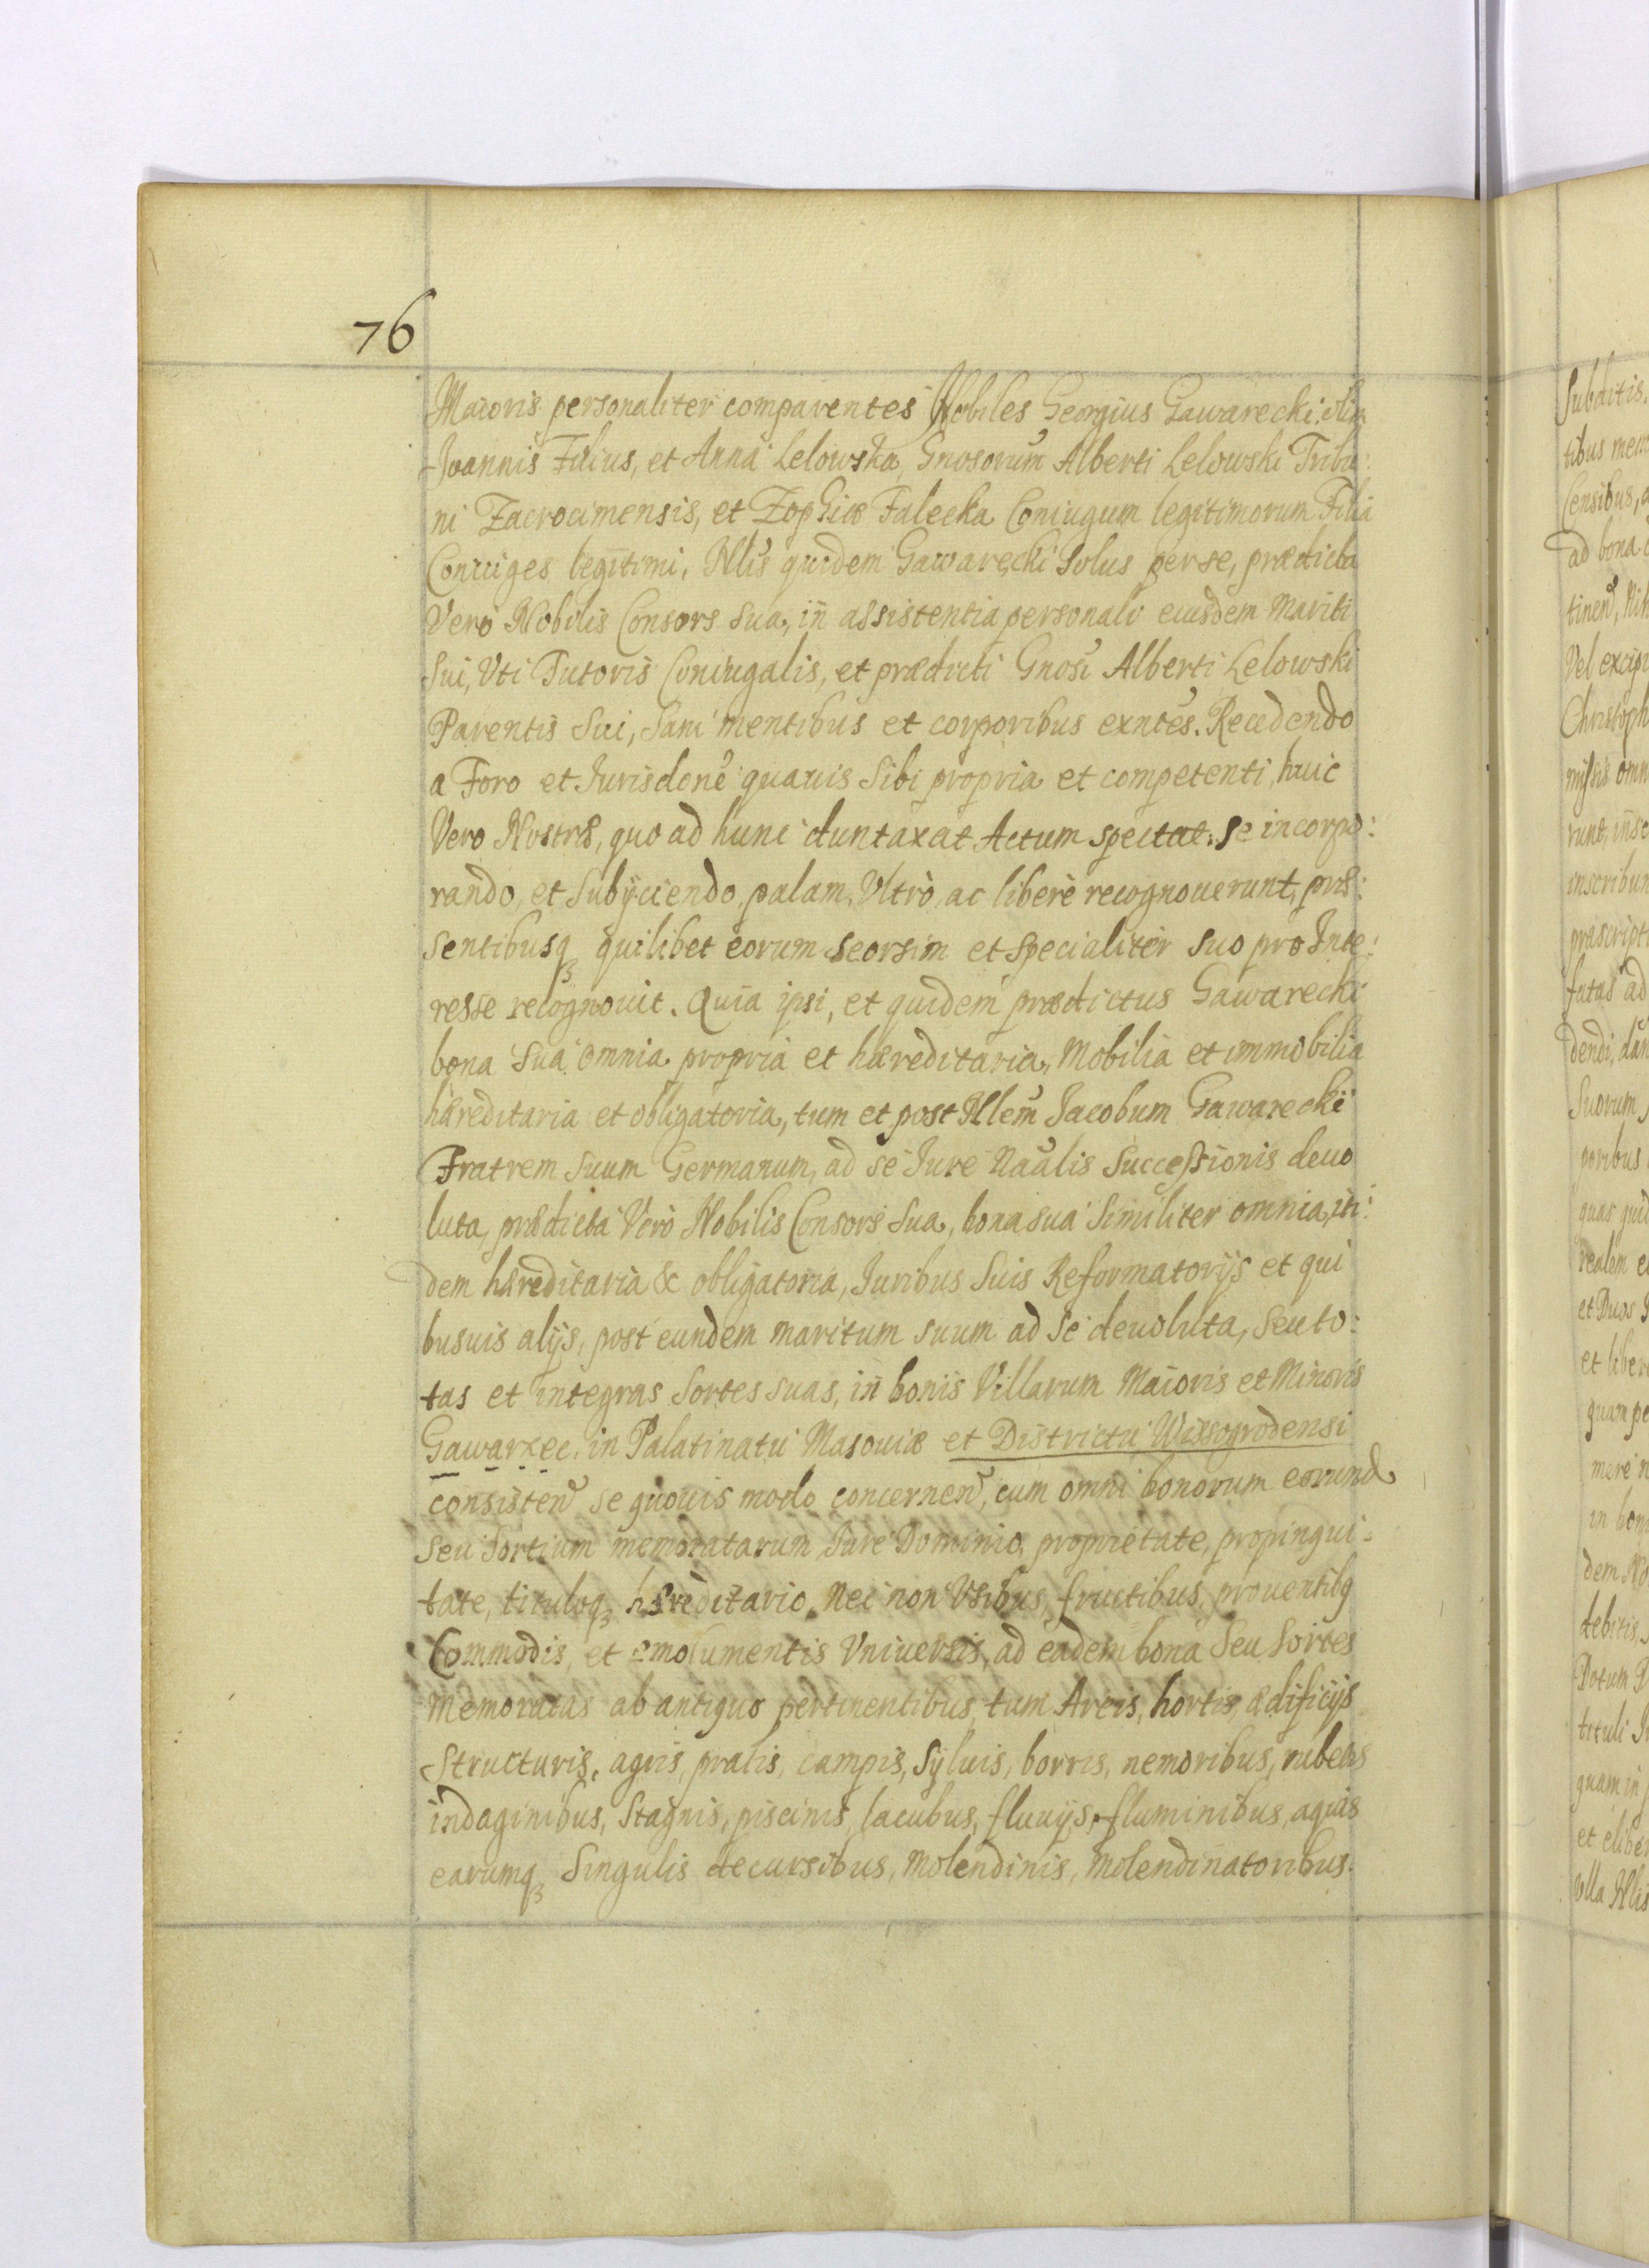 76
Maioris personaliter comparentes Nobiles Georgius Gawarecki, olim
Joannis Filius, et Anna Lelowska, Gnosorum Alberti Lelowski Tribu:
ni Zacrocimensis, et Zophiæ Falecka Coniugum legitimorum Filia
Coniuges legitimi, Nlis quidem Gawarecki Solus per se, prædicta
Vero Nobilis Consors Sua, in assistentia personali eiusdem Mariti
Sui, Vti Tutoris Coniugalis, et prædicti Gnosi Alberti Lelowski
Parentis Sui, Sani mentibus et corporibus exntes. Recedendo
a Foro et Jurisdone quauis Sibi propria et competenti, huic
Vero Nostræ, quo ad hunc duntaxat Actum spectat, se incorpo:
rando, et Subÿciendo, palam, Vltrò, ac liberè recognouerunt, præ:
sentibusq quilibet eorum seorsim et specialiter suo pro Inte:
resse recognouit. Quia ipsi, et quidem prædictus Gawarecki
bona Sua omnia propria et hæreditaria, Mobilia et immobilia
hæreditaria et obligatoria, tum et post Nlem Jacobum Gawarecki
Fratrem Suum Germanum, ad se Jure Naalis Successionis deuo
luta, prædicta Verò Nobilis Consors Sua, bona sua Similiter omnia, iti:
dem hæreditaria & obligatoria, Juribus Suis Reformatorÿs et qui
busuis alÿs, post eundem maritum suum ad se deuoluta, Seu to:
tas et integras Sortes suas, in bonis Villarum Maioris et Minoris
Gawarzec, in Palatinatu Masouiæ et Districtu Wissogrodensi
consisten se quouis modo concernen, cum omni bonorum eorund
Seu Sortium memoratarum Jure Dominio, proprietate, propinqui-
tate, tituloq hæreditario, Nec non Vsibus, fructibus, prouentibq
Commodis, et emolumentis Vniuersis, ad eadem bona Seu Sortes
Memoratas ab antiquo pertinentibus, tum Areis, hortis, ædificÿs
Structuris, agris, pratis, campis, Syluis, borris, nemoribus, rubetis
indaginibus, Stagnis, piscinis, lacubus, fluuÿs, fluminibus, aquis
earumq Singulis decursibus, Molendinis, Molendinatoribus.
Subditis,
tibus mem
Censibus, a
ad bona
tinen, Nih
Vel excipi
Christoph
missis omn
runt, inse
inscribun
præscript
fatas ad
dendi, dan
Suorum
poribus
quas quid
realem e
et Duos
et liber
quam pe
mere n
in bon
dem No
debitis,
Dotum
tituli
quam in
et eliber
Vlla Nlis